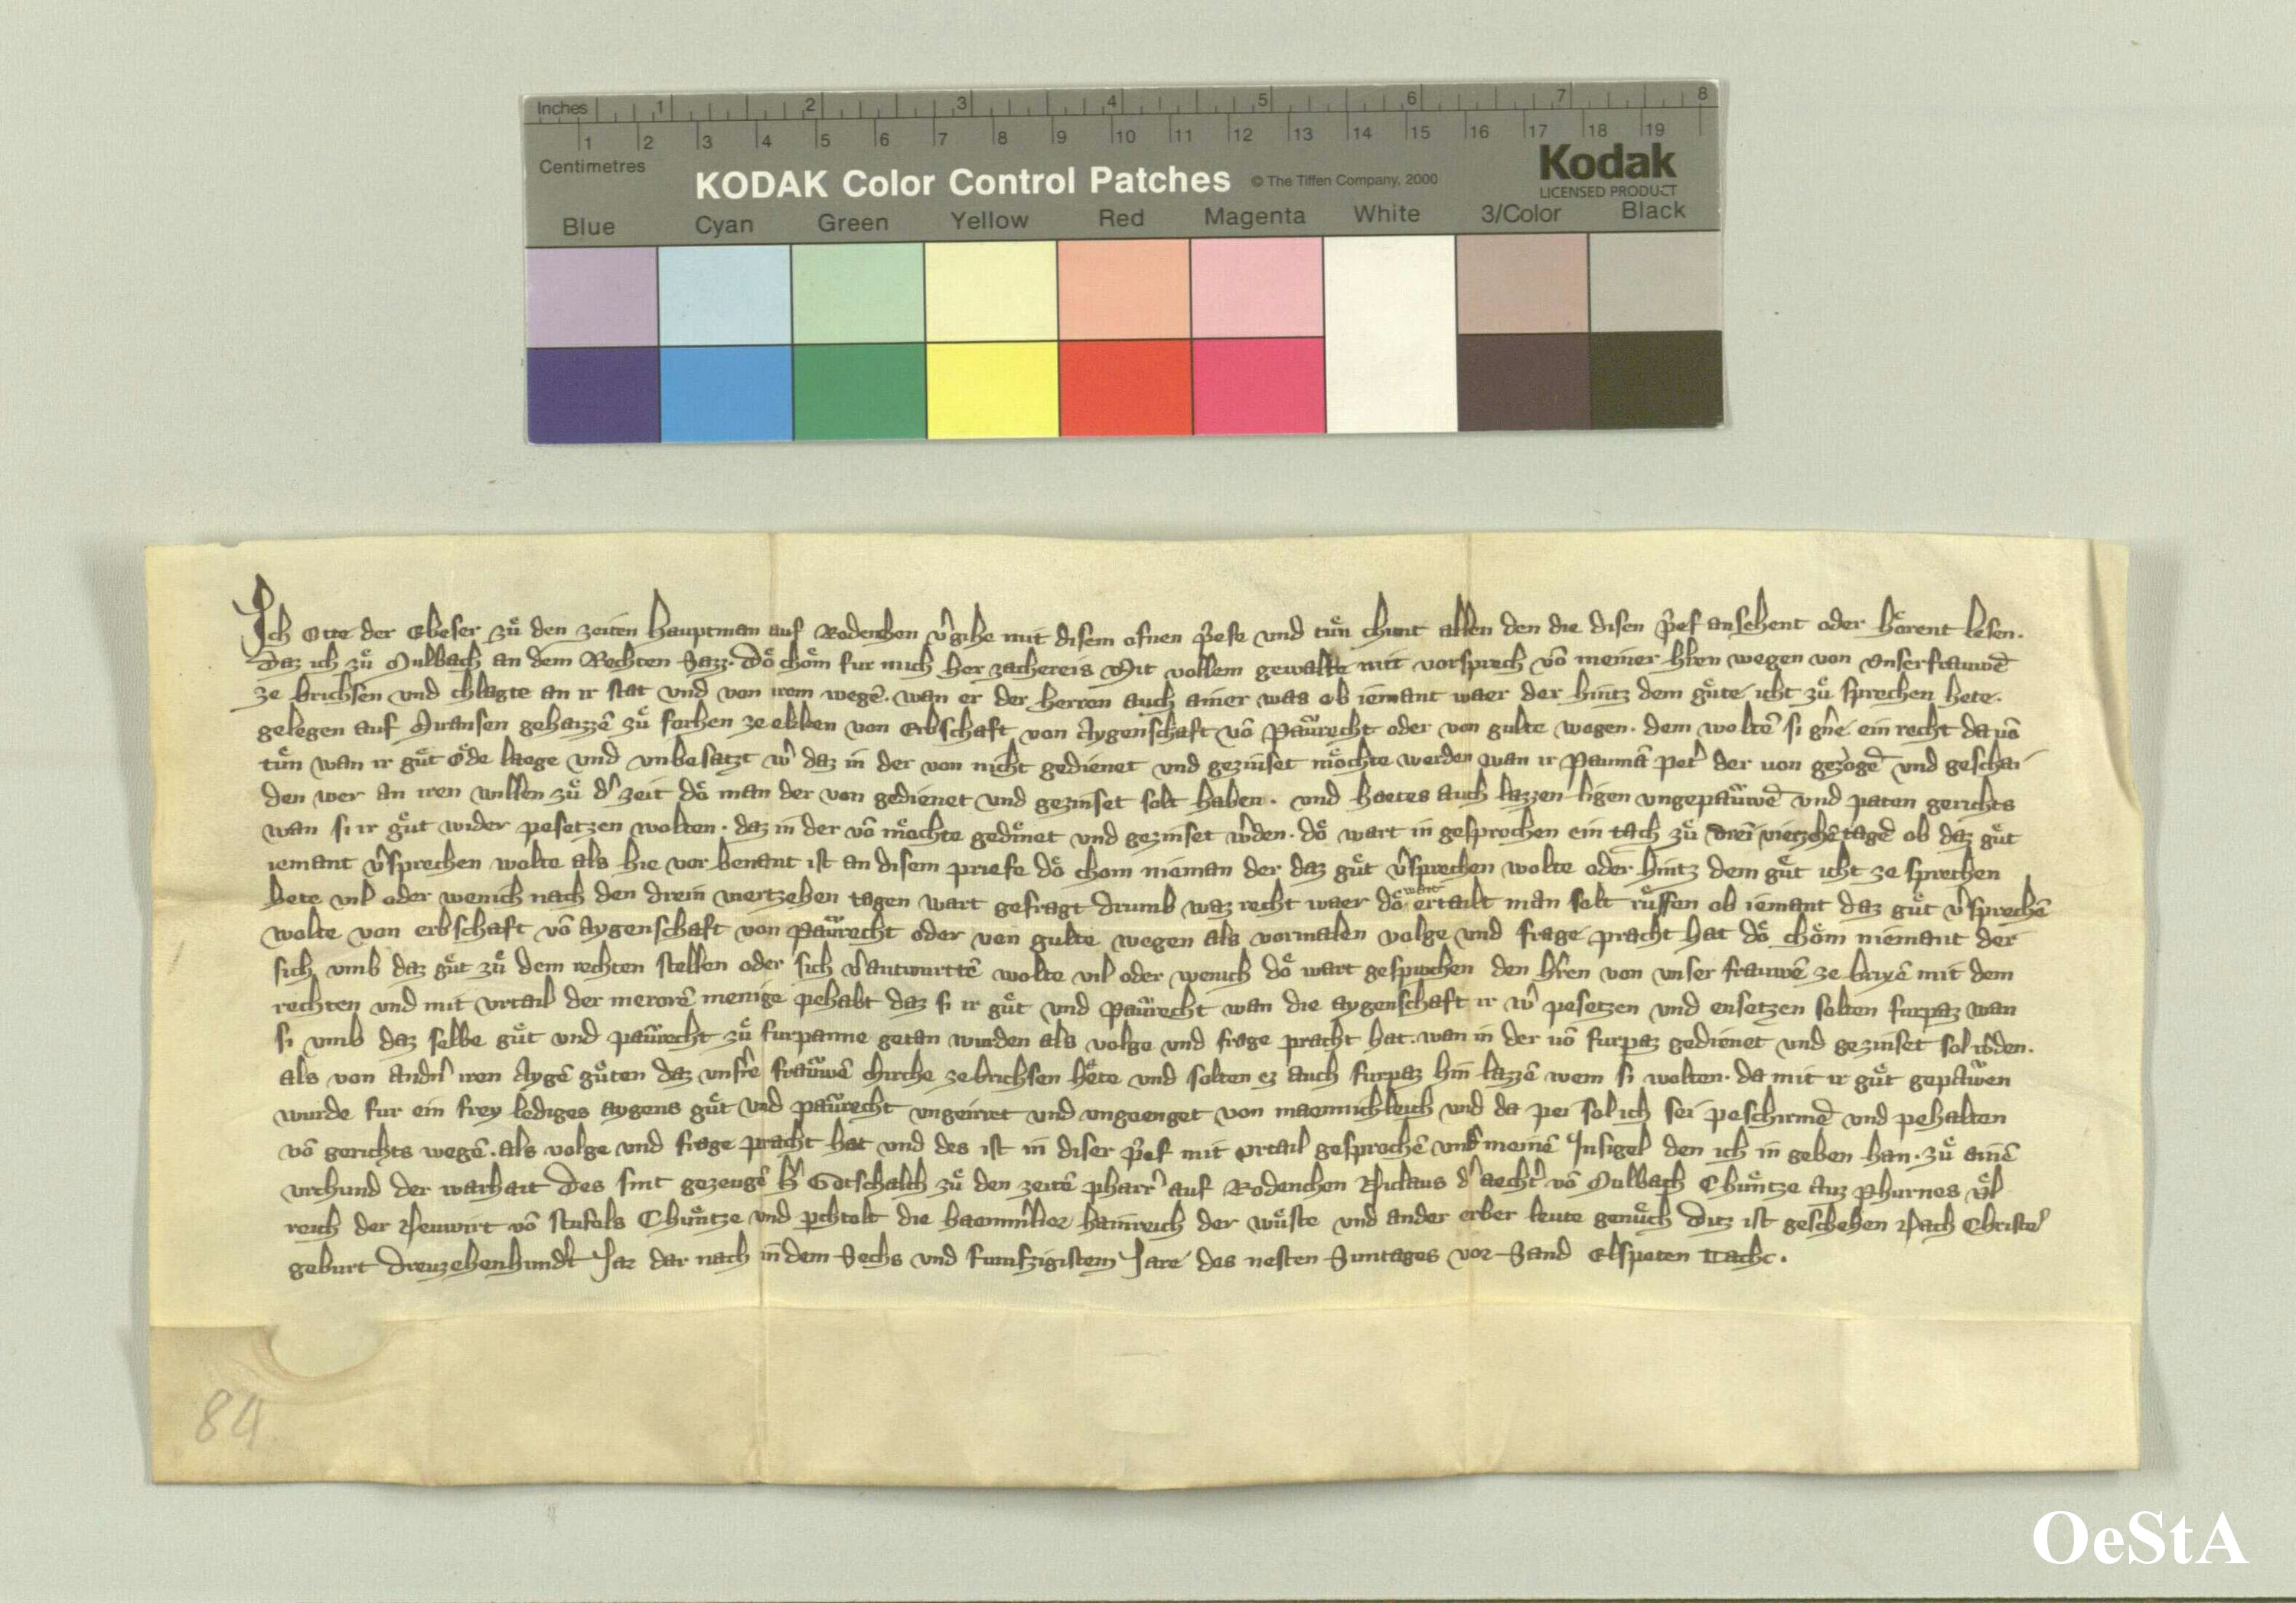 Inches 1 2 3 4 5 6 7 8
1 2 3 4 5 6 7 8 9 10 11 12 13 14 15 16 17 18 19
Centimetres
KODAK Color Control Patches © The Tiffen Company, 2000
Kodak
LICENSED PRODUCT
Blue Cyan Green Yellow Red Magenta White 3/Color Black
Ich Otte der Ebeser zuͦ den zeiten hauptman auf Rodenchen v̾gihe mit disem ofnen p̾efe vnd tuͤn chunt allen den die disen p̾ef ansehent oder hoͤrent lesen.
Daz ich zuͦ Mulbach an dem Rechten Sazz. Doͤ choͤm fur mich her zachereis Mit vollem gewalte mit vorsprech võ meiner hr̃en wegen von Vnserfrauwẽ
ze brichsen vnd chlagte an ir stat vnd von irem wegẽ. wan er der herren auch ainer was ob iemant waer der hintz dem guͤte icht zuͦ sprechen hete.
gelegen auf Maransen gehaizzẽ zuͦ forhen ze ekken von Erbschaft von Aygenschaft võ Paũrecht oder von gulte wegen. dem woltẽ si g̾ne ein recht da uõ
tuͤn wan ir guͤt oͤde laege vnd vnbesatzt w̾ daz in der von nicht gedienet vnd gezinset moͤchte werden wan ir Paumã Pet̾ der uon gezogẽ vnd geschai
den wer an iren willen zuͦ d̾ zeit doͤ man der von gedienet vnd gezinset solt haben. vnd haetes auch lazzen ligen vngepaũwẽ vnd paten gerichts
wan si ir guͤt wider pesetzen wolten. daz in der võ moͤchte gediͤnet vnd gezinset w̾den. doͤ wart in gesprochen ein tach zuͦ drei vierzehẽ tagẽ ob daz guͤt
iemant v̾sprechen wolte als hie vor benant ist an disem priefe doͤ chom nieman der daz guͤt v̾sprechen wolte oder hintz dem guͤt icht ze sprechen
hete vil oder wenich nach den drein viertzehen tagen wart gefragt drumb waz recht waer doͤ wart ertailt man solt ruͤffen ob iemant daz guͤt v̾sprechẽ
wolte von erbschaft võ Aygenschaft von Paũrecht oder von gulte wegen als vormalen volge vnd frage pracht hat doͤ choͤm niemant der
sich vmb daz guͤt zuͦ dem rechten stellen oder sich v̾antwurttẽ wolte vil oder wenich doͤ wart gesprochen den hr̃en von vnser frauwẽ ze brixẽ mit dem
rechten vnd mit vrtail der merorẽ menige pehabt daz si ir guͤt vnd Paũrecht wan die aygenschaft ir w̾ pesetzen vnd ensetzen solten furpaz wan
si vmb daz selbe guͤt vnd paũrecht zuͦ furpanne getan wurden als volge vnd frage pracht hat. wan in der uõ furpaz gedienet vnd gezinset sol w̾den.
als von andn̾ iren Aygẽ guͤten daz vnsr̾e fraũwẽ chirche ze brichsen heͤte vnd solten ez auch furpaz hin lazzẽ wem si wolten. da mit ir guͤt gepaũwen
wurde fur ein frey lediges aygens guͤt vnd paũrecht vngeirret vnd vngeenget von maennichleich vnd da pei sol ich sei peschirmẽ vnd pehalten
võ gerichts wegẽ. als volge vnd frage pracht hat vnd des ist in diser p̾ef mit vrtail gesprochẽ vnd̾ meinẽ Insigel den ich in geben han. zuͦ ainẽ
vrchund der warhait Des sint gezeugẽ h̾ Gotschalch zuͦ den zeitẽ pharr̾ auf Rodenchen Niclaus d̾ aecht̾ võ Mulbach Chuͤntze auz Phurnes vͤl
reich der Neuwirt võ stufels Chuͤntze vnd p̾chtolt die haemm̾lier hainreich der wuͤste vnd ander erber leute genuͤch Ditz ist geschehen Nach Christes
geburt dreuzehenhund̾t Jar dar nach in dem Sechs vnd funfzigistem Jare des nesten Suntages vor Sand Elspeten Tache.
84
OeStA